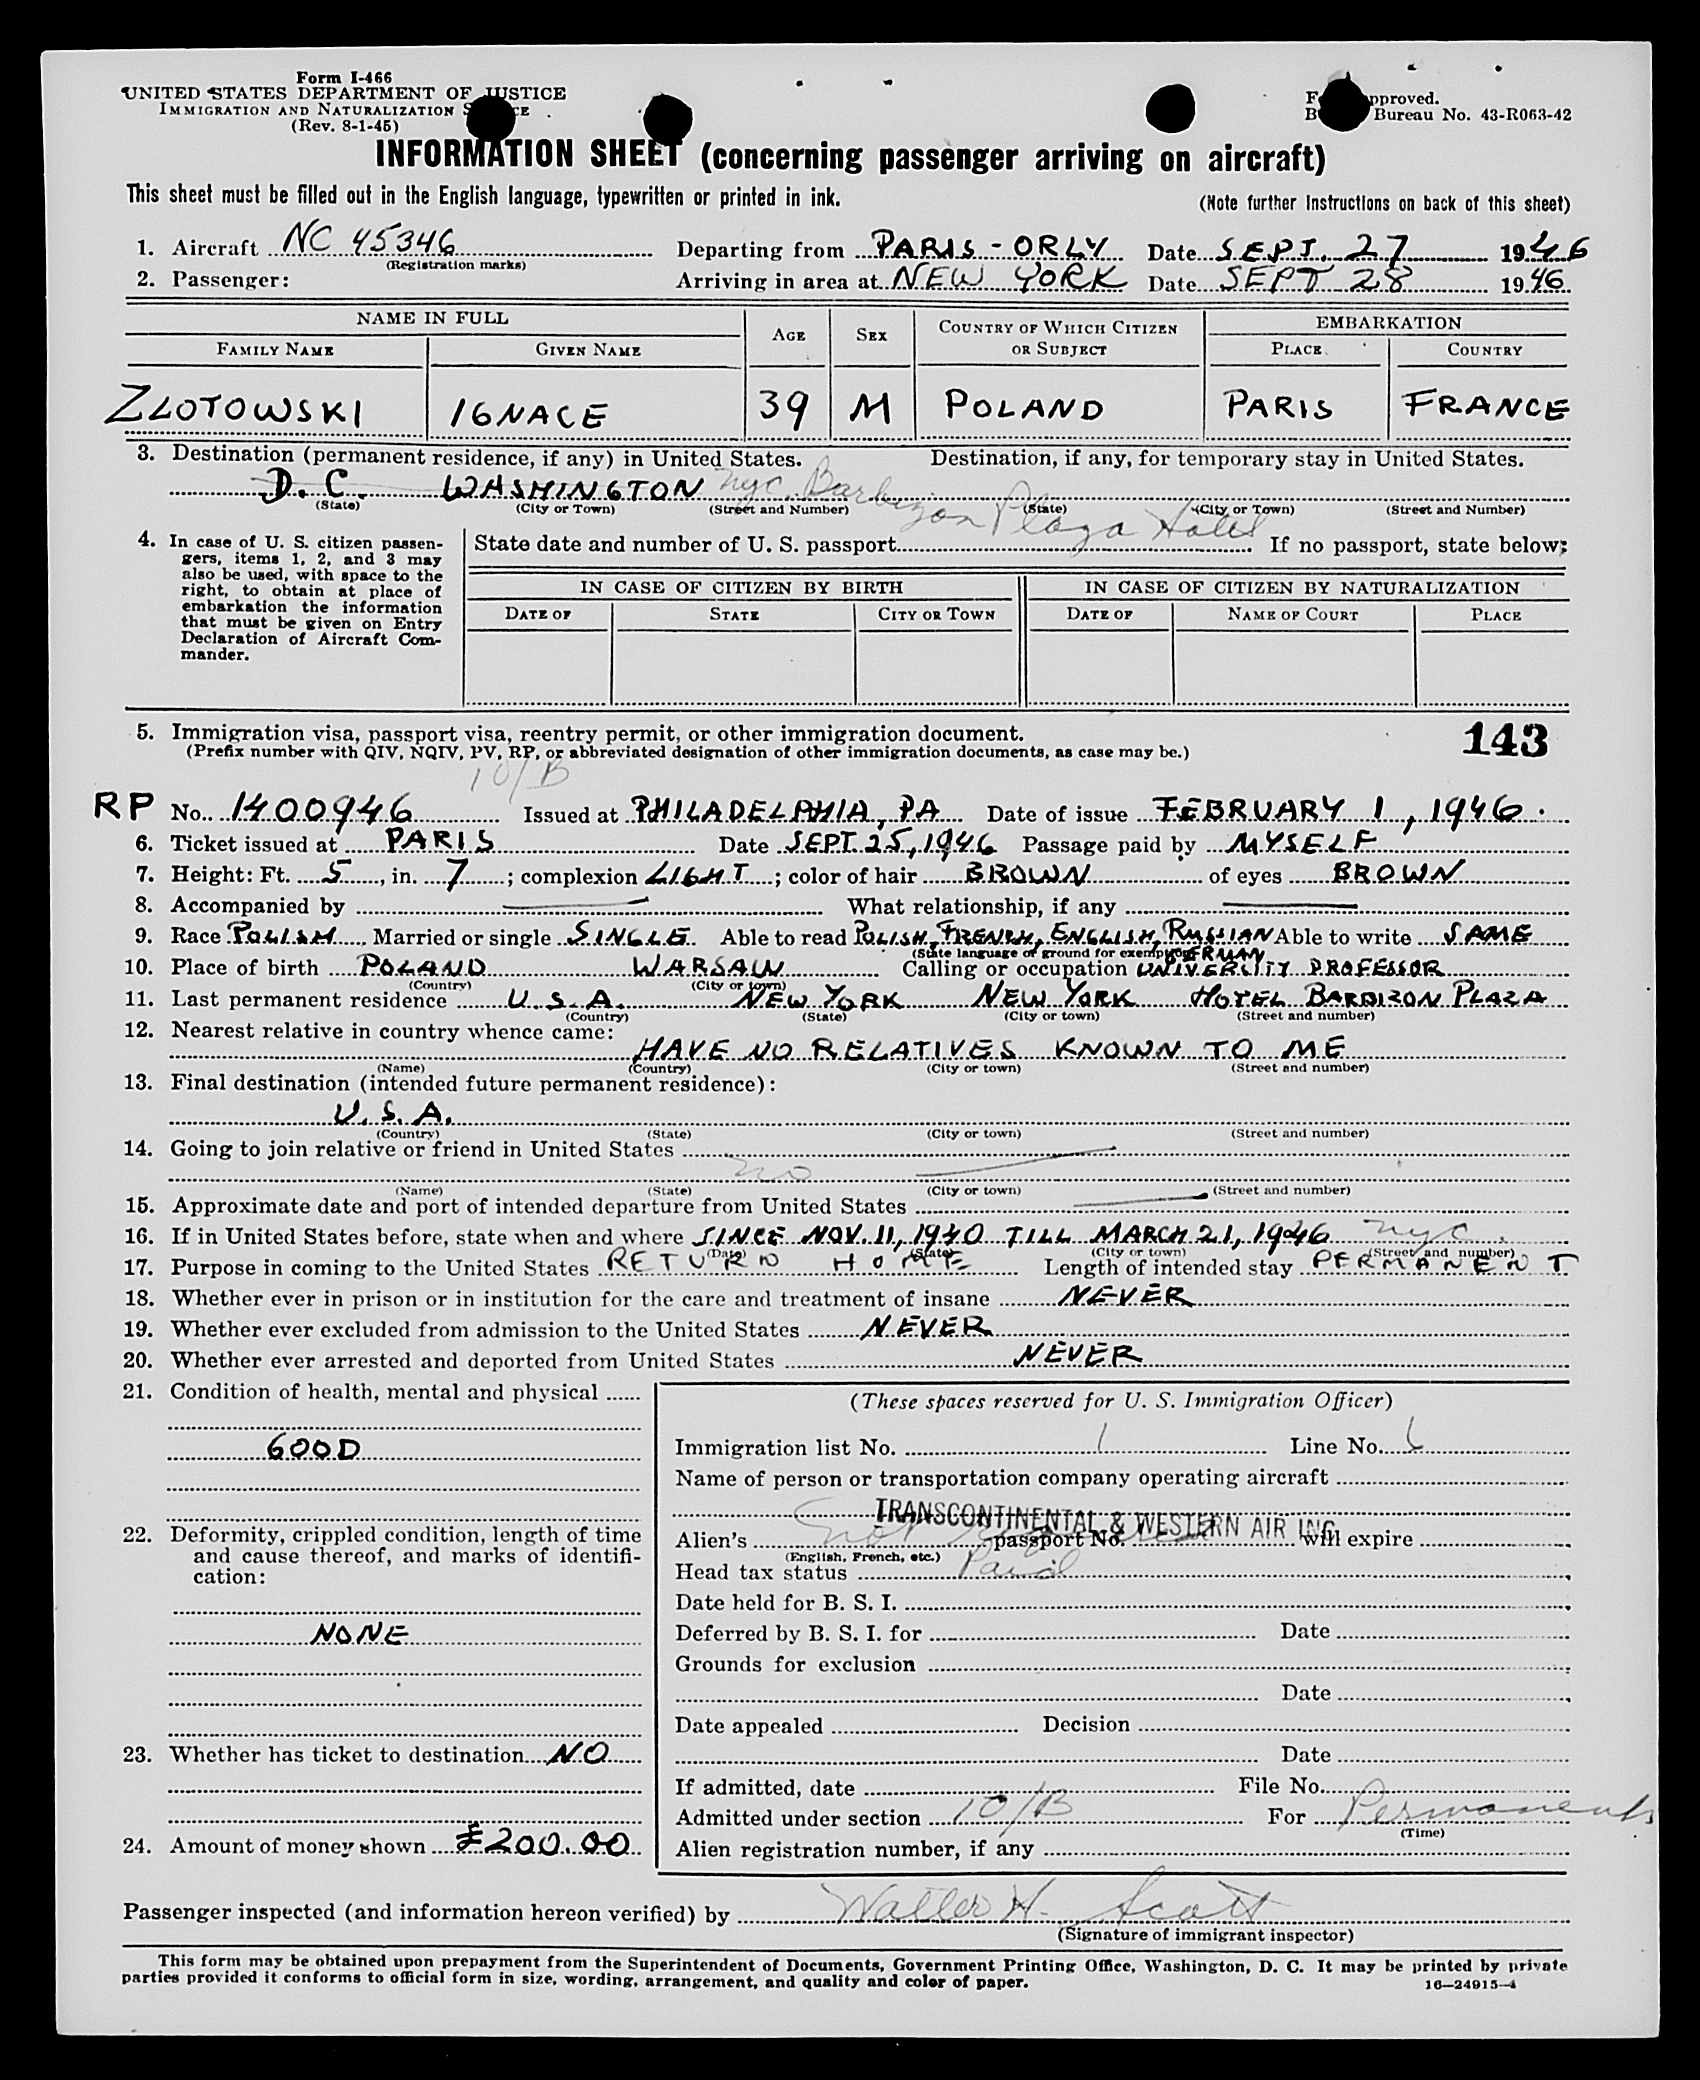 Form I-466
UNITED STATES DEPARTMENT OF JUSTICE
IMMIGRATION AND NATURALIZATION S CE
(Rev. 8-1-45)
F pproved.
B Bureau No. 43-R063-42
INFORMATION SHEET (concerning passenger arriving on aircraft)
This sheet must be filled out in the English language, typewritten or printed in ink. (Note further instructions on back of this sheet)
1. Aircraft NC 45346 Departing from PARIS - ORLY Date SEPT. 27 1946
(Registration marks)
2. Passenger: Arriving in area at NEW YORK Date SEPT 28 1946
NAME IN FULL AGE SEX COUNTRY OF WHICH CITIZEN OR SUBJECT EMBARKATION
FAMILY NAME GIVEN NAME PLACE COUNTRY
ZLOTOWSKI IGNACE 39 M POLAND PARIS FRANCE
3. Destination (permanent residence, if any) in United States. Destination, if any, for temporary stay in United States.
D. C. WASHINGTON nyc. Barbizon Plaza Hotel
(State) (City or Town) (Street and Number) (State) (City or Town) (Street and Number)
4. In case of U. S. citizen passen-
gers, items 1, 2, and 3 may
also be used, with space to the
right, to obtain at place of
embarkation the information
that must be given on Entry
Declaration of Aircraft Com-
mander.
State date and number of U. S. passport If no passport, state below:
IN CASE OF CITIZEN BY BIRTH IN CASE OF CITIZEN BY NATURALIZATION
DATE OF STATE CITY OR TOWN DATE OF NAME OF COURT PLACE
5. Immigration visa, passport visa, reentry permit, or other immigration document. 143
(Prefix number with QIV, NQIV, PV, RP, or abbreviated designation of other immigration documents, as case may be.)
10/B
RP No. 1400946 Issued at PHILADELPHIA, PA Date of issue FEBRUARY 1, 1946.
6. Ticket issued at PARIS Date SEPT. 25, 1946 Passage paid by MYSELF
7. Height: Ft. 5, in. 7; complexion LIGHT; color of hair BROWN of eyes BROWN
8. Accompanied by What relationship, if any
9. Race POLISH, Married or single SINGLE Able to read POLISH, FRENCH, ENGLISH, RUSSIAN Able to write SAME
(State language or ground for exemption) GERMAN
10. Place of birth POLAND WARSAW Calling or occupation UNIVERSITY PROFESSOR
(Country) (City or town)
11. Last permanent residence U. S. A. NEW YORK NEW YORK HOTEL BARBIZON PLAZA
(Country) (State) (City or town) (Street and number)
12. Nearest relative in country whence came:
HAVE NO RELATIVES KNOWN TO ME
(Name) (Country) (City or town) (Street and number)
13. Final destination (intended future permanent residence):
U. S. A.
(Country) (State) (City or town) (Street and number)
14. Going to join relative or friend in United States
no
(Name) (State) (City or town) (Street and number)
15. Approximate date and port of intended departure from United States
16. If in United States before, state when and where SINCE NOV. 11, 1940 TILL MARCH 21, 1946 nyc.
(Date) (State) (City or town) (Street and number)
17. Purpose in coming to the United States RETURN HOME Length of intended stay PERMANENT
18. Whether ever in prison or in institution for the care and treatment of insane NEVER
19. Whether ever excluded from admission to the United States NEVER
20. Whether ever arrested and deported from United States NEVER
21. Condition of health, mental and physical
GOOD
22. Deformity, crippled condition, length of time
and cause thereof, and marks of identifi-
cation:
NONE
23. Whether has ticket to destination NO
24. Amount of money shown £200.00
(These spaces reserved for U. S. Immigration Officer)
Immigration list No. 1 Line No. 6
Name of person or transportation company operating aircraft
TRANSCONTINENTAL & WESTERN AIR INC.
Alien's not passport No. will expire
(English, French, etc.)
Head tax status Paid
Date held for B. S. I.
Deferred by B. S. I. for Date
Grounds for exclusion
Date
Date appealed Decision
Date
If admitted, date File No.
Admitted under section 10/B For Permanent
(Time)
Alien registration number, if any
Passenger inspected (and information hereon verified) by Walter H. Scott
(Signature of immigrant inspector)
This form may be obtained upon prepayment from the Superintendent of Documents, Government Printing Office, Washington, D. C. It may be printed by private
parties provided it conforms to official form in size, wording, arrangement, and quality and color of paper. 16—24915-4